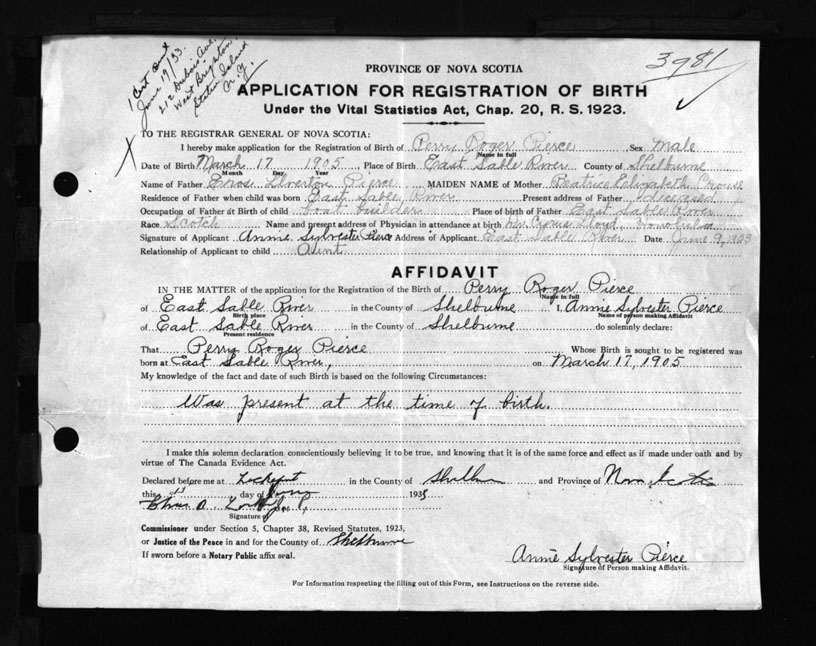 1 Cert Sent
June 19/33.
212 Dubois Ave.
West Brighton
Staten Island
N.Y.
3981
PROVINCE OF NOVA SCOTIA
APPLICATION FOR REGISTRATION OF BIRTH
Under the Vital Statistics Act, Chap. 20, R. S. 1923.
TO THE REGISTRAR GENERAL OF NOVA SCOTIA:
I hereby make application for the Registration of Birth of Perry Roger Pierce Sex Male
Name in full
Date of Birth March 17 1905 Place of Birth East Sable River County of Shelburne
Month Day Year
Name of Father Enos Pierce MAIDEN NAME of Mother Beatrice Elizabeth Crouse
Residence of Father when child was born East Sable River Present address of Father deceased
Occupation of Father at Birth of child boat builder Place of birth of Father East Sable River
Race Scotch Name and present address of Physician in attendance at birth
Signature of Applicant Annie Sylvester Pierce Address of Applicant East Sable River Date June 9, 1933
Relationship of Applicant to child Aunt
AFFIDAVIT
IN THE MATTER of the application for the Registration of the Birth of Perry Roger Pierce
Name in full
of East Sable River in the County of Shelburne I, Annie Sylvester Pierce
Birth place Name of person making Affidavit
of East Sable River in the County of Shelburne do solemnly declare:
Present residence
That Perry Roger Pierce Whose Birth is sought to be registered was
born at East Sable River, on March 17, 1905
My knowledge of the fact and date of such Birth is based on the following Circumstances:
Was present at the time of birth.
I make this solemn declaration conscientiously believing it to be true, and knowing that it is of the same force and effect as if made under oath and by
virtue of The Canada Evidence Act.
Declared before me at Lockeport in the County of Shelburne and Province of Nova Scotia
this day of 193
Signature of
Commissioner under Section 5, Chapter 38, Revised Statutes, 1923,
or Justice of the Peace in and for the County of Shelburne
If sworn before a Notary Public affix seal.
Annie Sylvester Pierce
Signature of Person making Affidavit.
For Information respecting the filling out of this Form, see Instructions on the reverse side.